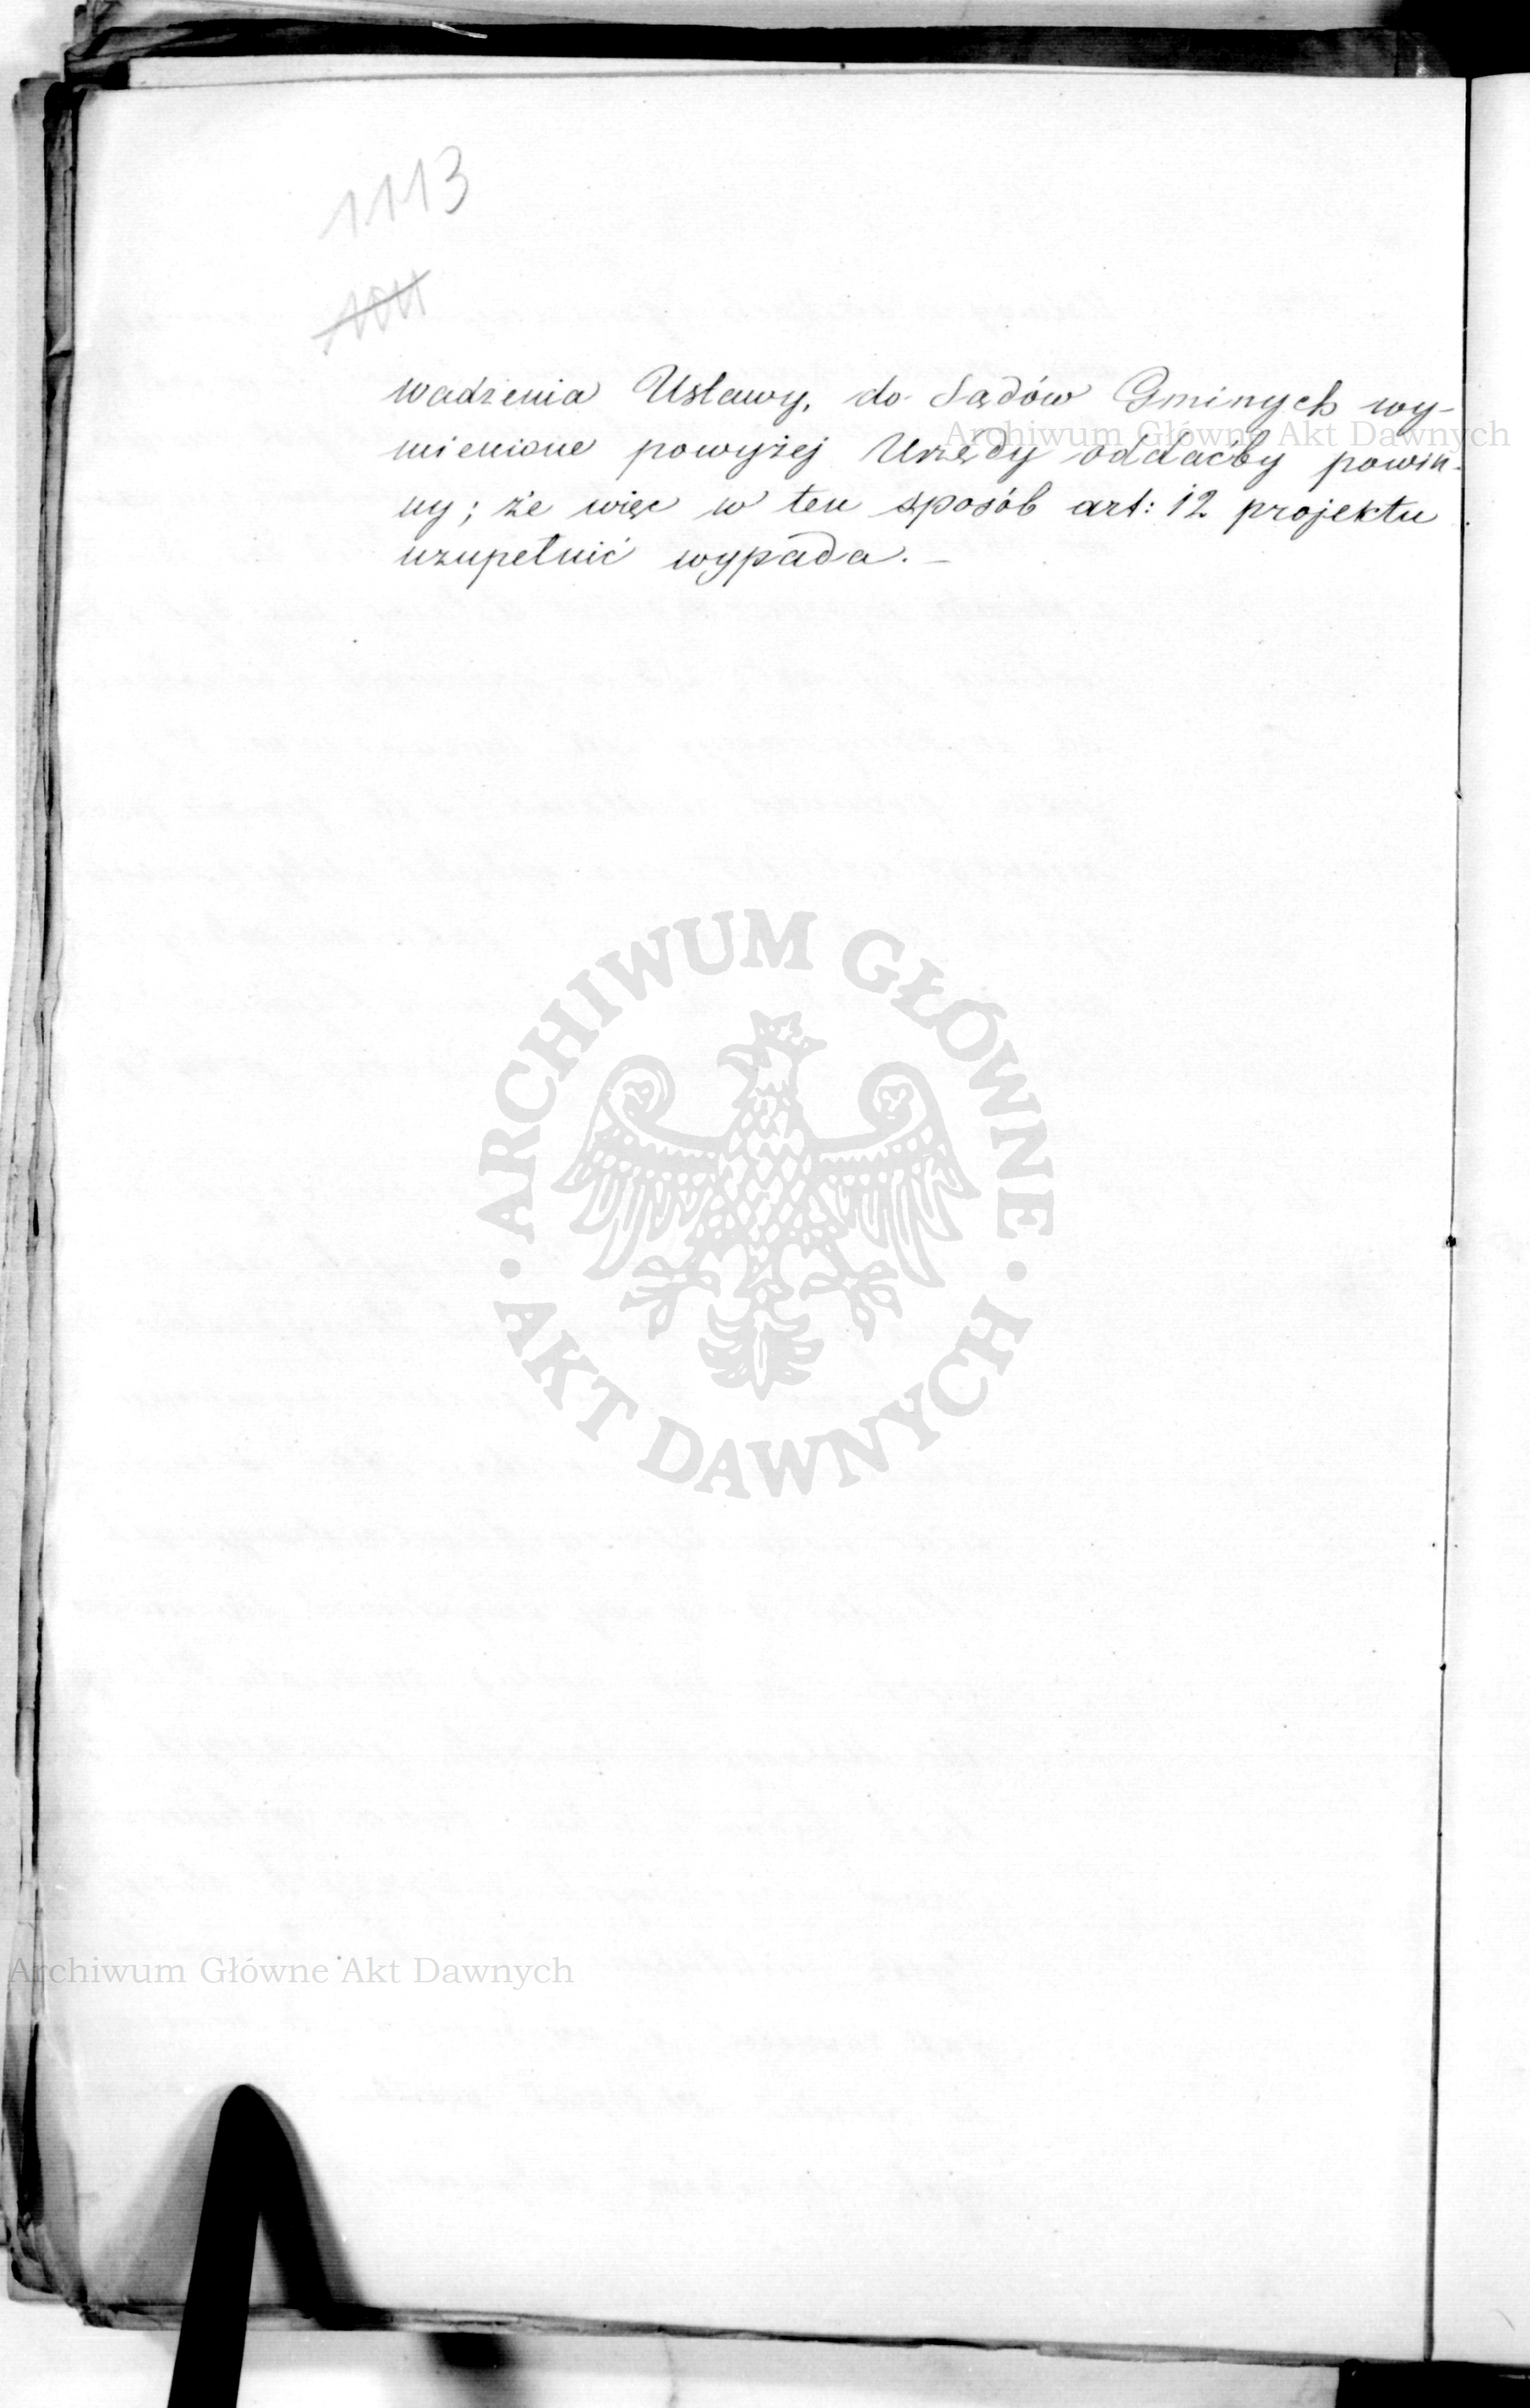 1113
wadzenia Ustawy, do Sądów Gminych wy-
mienione powyżej Urzędy oddaćby powin-
ny; że więc w ten sposób art: 12 projektu
uzupełnić wypada. –
Archiwum Główne Akt Dawnych
ARCHIWUM GŁÓWNE · AKT DAWNYCH ·
Archiwum Główne Akt Dawnych